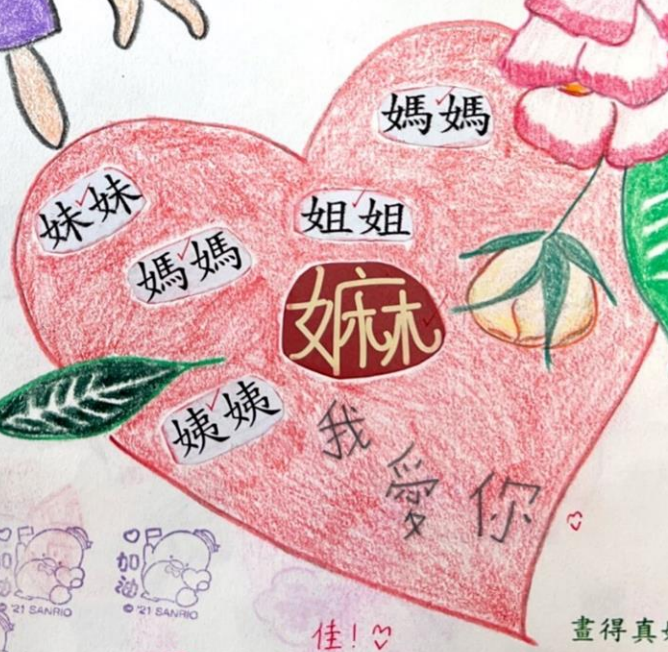 媽媽
妹妹
姐姐
媽媽
嫲
姨姨
我
愛
你
加油
© '21 SANRIO
加油
© '21 SANRIO
佳!
畫得真